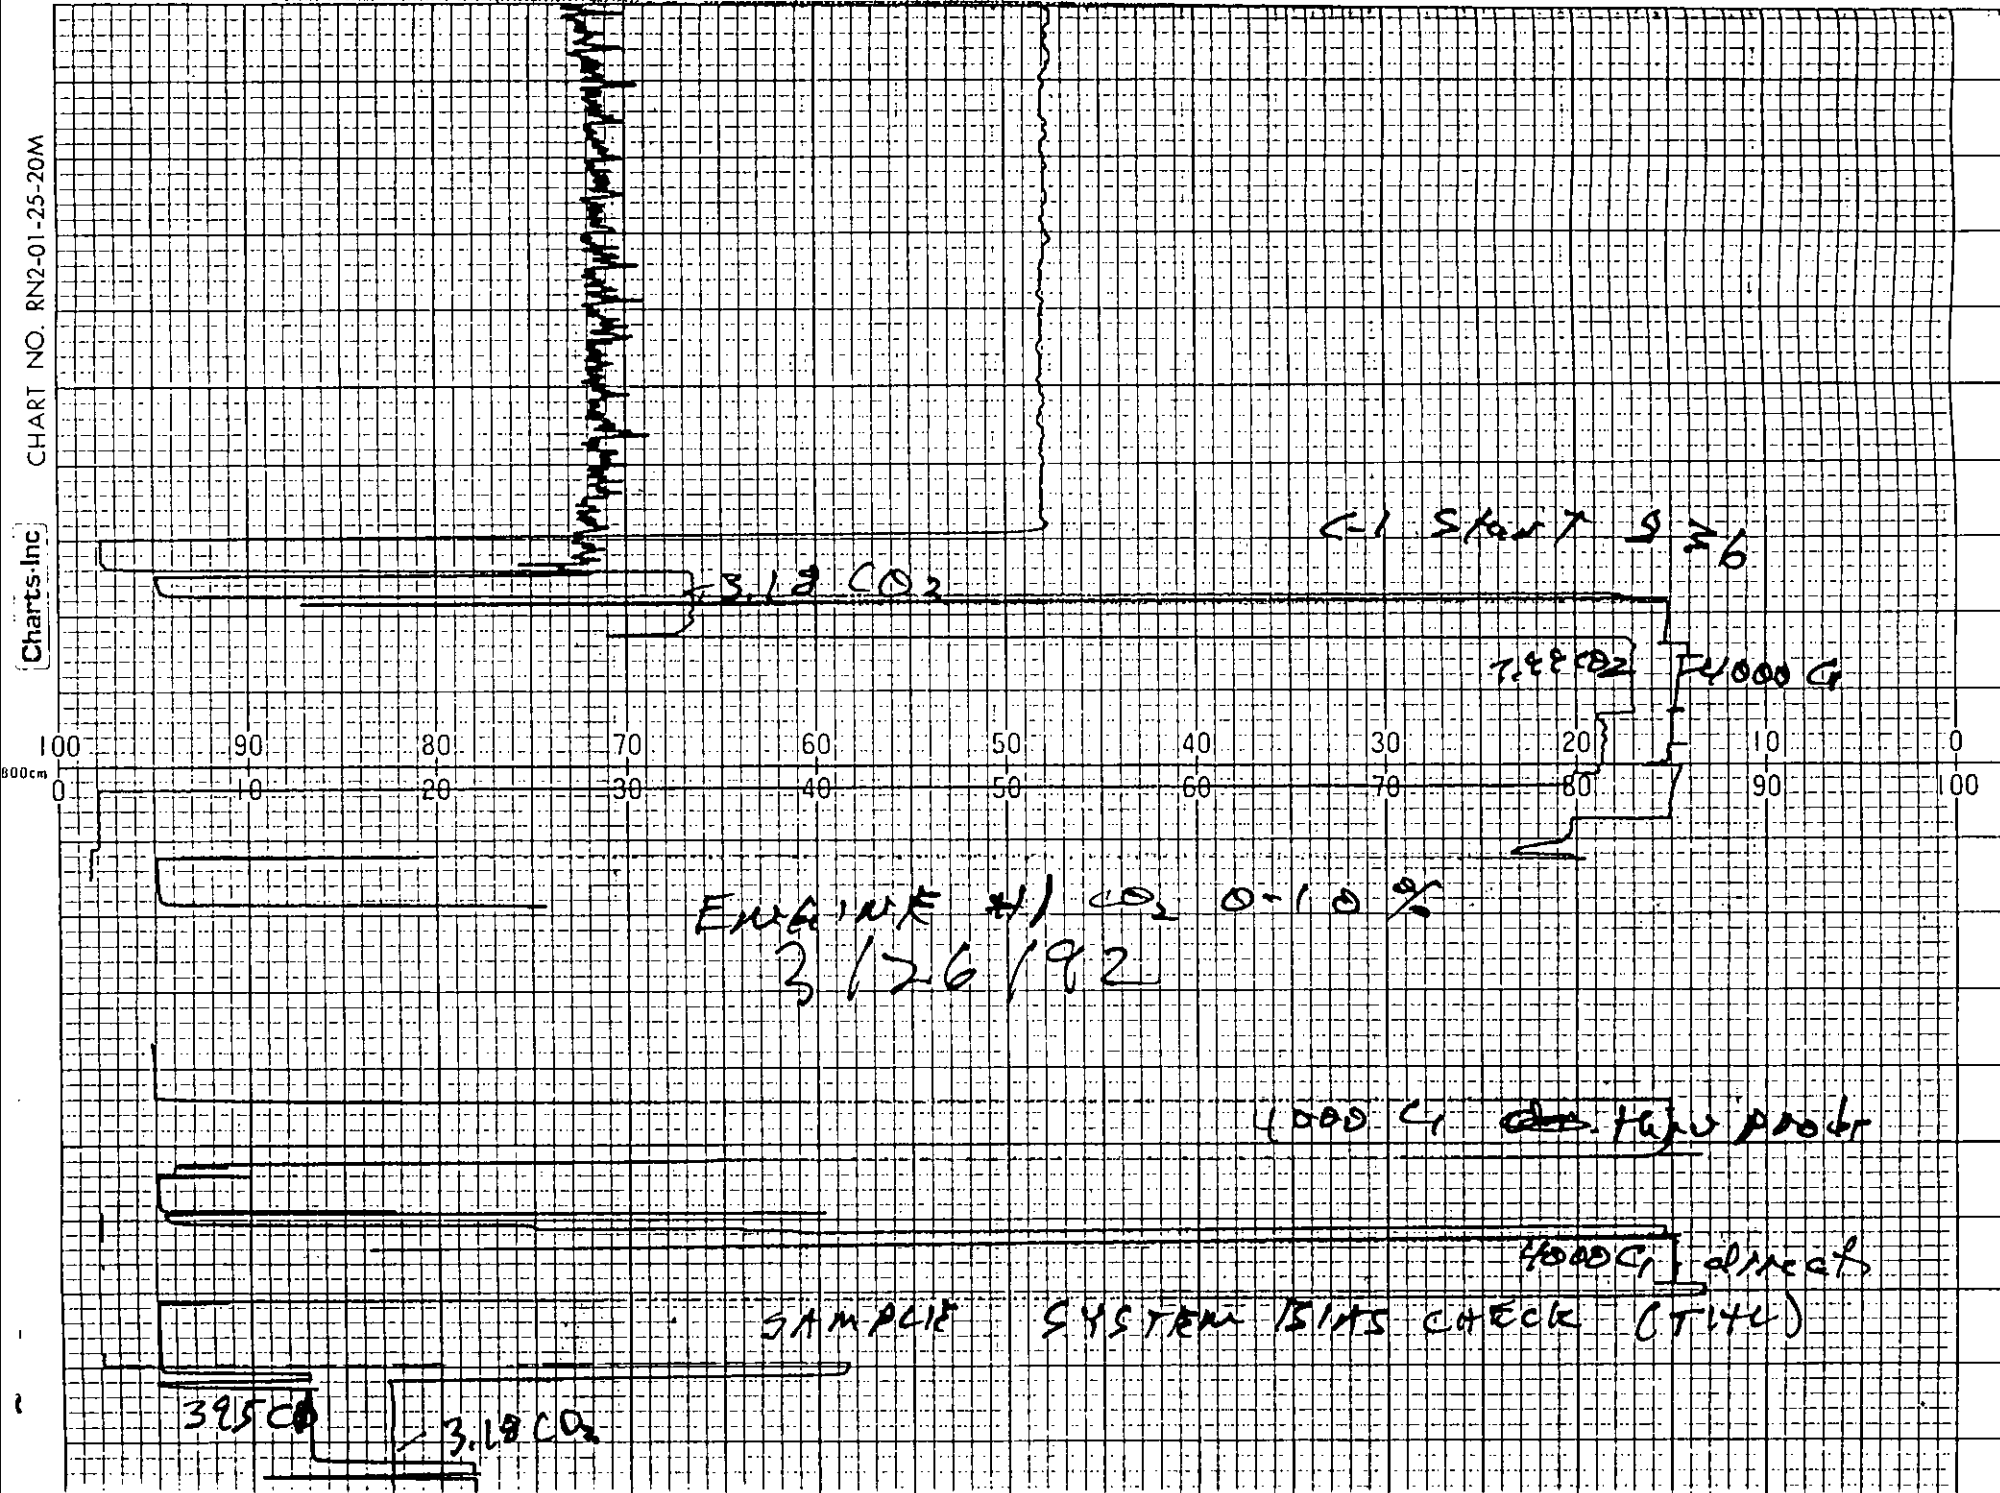 CHART NO. RN2-01-25-20M
Charts-Inc
C-1 Start
3.18 CO2
4000 C1
100 90 80 70 60 50 40 30 20 10 0
800cm
0 10 20 30 40 50 60 70 80 90 100
ENGINE #1 CO2 0-10 %
3/26/92
4000 C1 thru probe
4000 C1 direct
SAMPLE SYSTEM BIAS CHECK (THC)
395 CO
3.18 CO2